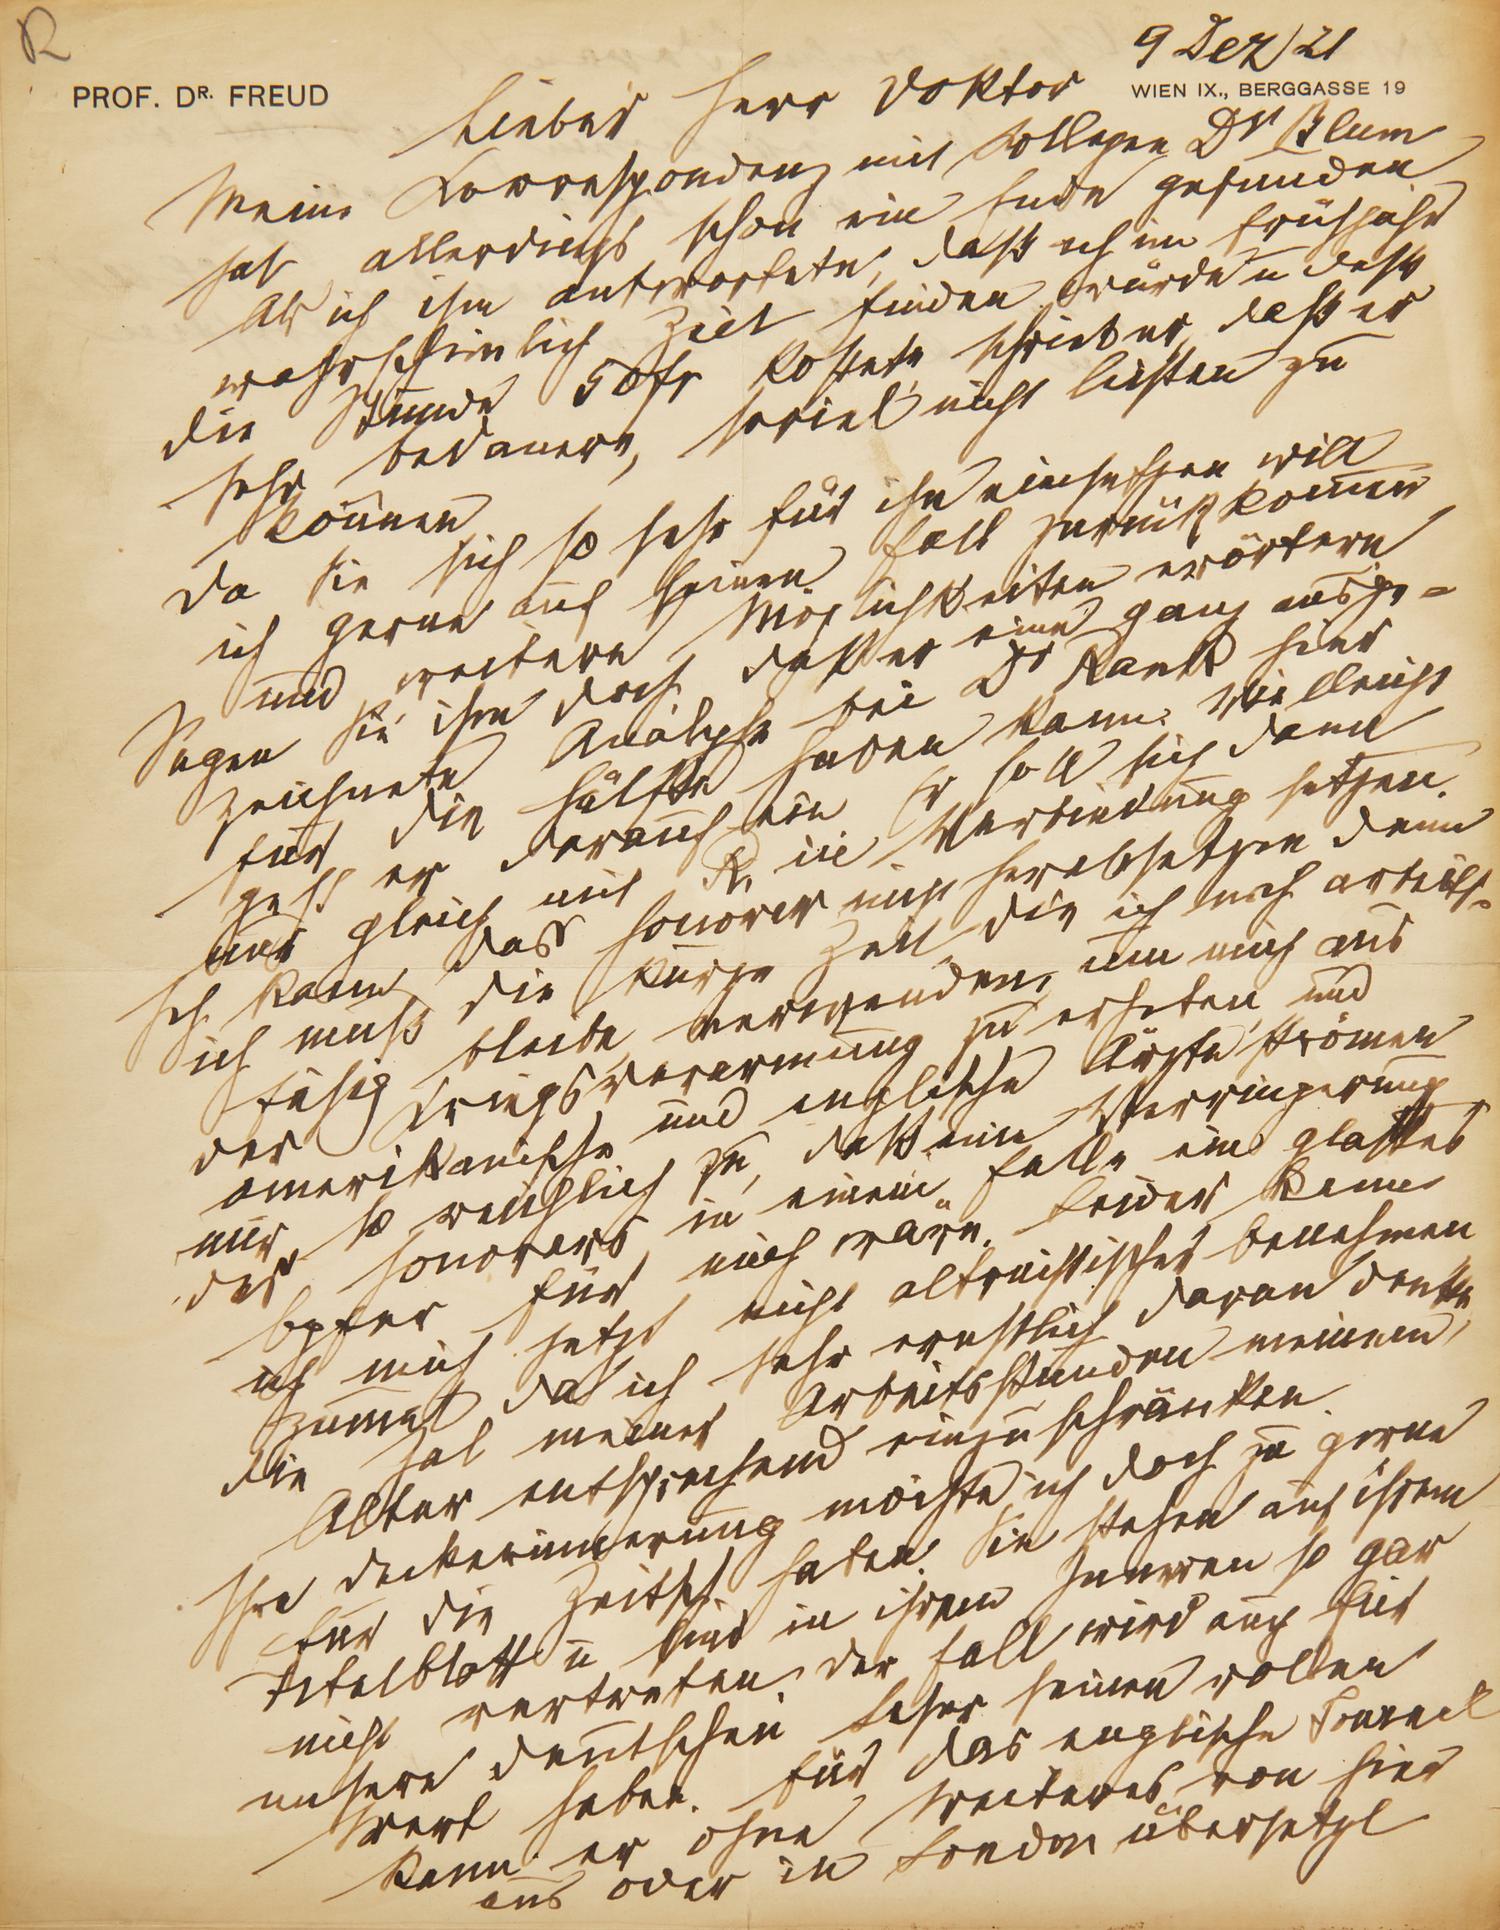 R
9 Dez 21
PROF. DR. FREUD
WIEN IX., BERGGASSE 19
Lieber Herr Doktor
Meine Korrespondenz mit Kollegen Dr Blum
hat allerdings schon ein Ende gefunden
Als ich ihm antwortete, daß ich im Frühjahr
wahrscheinlich Zeit finden würde u daß
die Stunde 50 fr kostete, schrieb er, daß er
sehr bedauere, soviel nicht leisten zu
können
Da Sie sich so sehr für ihn einsetzen will
ich gerne auf seinen Fall zurückkommen
und weitere Möglichkeiten erörtern
Sagen Sie ihm doch, daß er eine ganz ausge-
zeichnete Analyse bei Dr Rank hier
für die Hälfte haben kann. Vielleicht
geht er darauf ein Er soll sich dann
nur gleich mit R. in Verbindung setzen.
Ich kann das Honorar nicht herabsetzen denn
ich muß die kurze Zeit, die ich noch arbeits-
fähig bleibe, verwenden, um mich aus
der Kriegsverarmung zu erheben, und
amerikanische und englische Ärzte strömen
mir so reichlich zu, daß eine Verringerung
des Honorars in einem Falle ein glattes
Opfer für mich wäre. Leider kann
ich mich jetzt nicht altruistischer benehmen
zumal da ich sehr ernstlich daran denke,
die Zal meiner Arbeitsstunden meinem
Alter entsprechend einzuschränken.
Ihre Deckerinnerung möchte ich doch zu gerne
für die Zeitsch haben. Sie stehen auf ihrem
Titelblatt u sind in ihrem Inneren so gar
nicht vertreten. Der Fall wird auch für
unsere deutschen Leser seinen vollen
Wert haben. Für das englische Journal
kann er ohne weiteres von hier
aus oder in London übersetzt